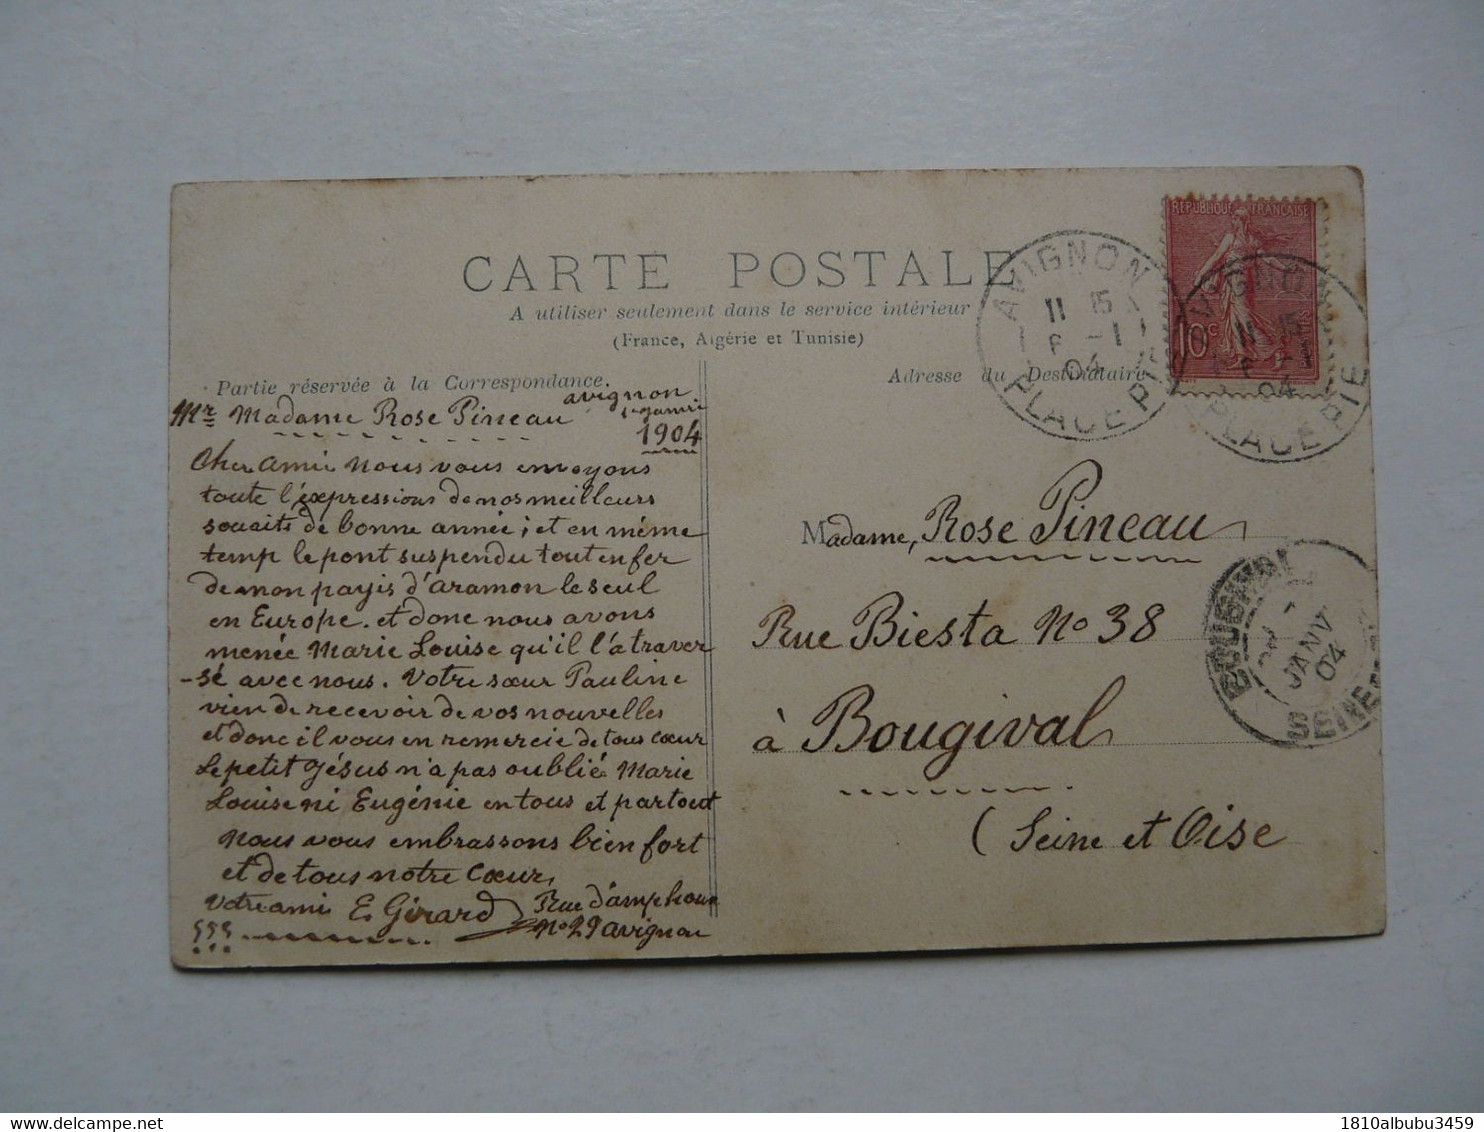 CARTE POSTALE
A utiliser seulement dans le service intérieur
(France, Algérie et Tunisie)
Partie réservée à la Correspondance.
Adresse du Destinataire
REPUBLIQUE FRANÇAISE
10c
AVIGNON
11 15
-1
04
PLACE PIE
AVIGNON
11 15
04
PLACE PIE
avignon
1904
Mr Madame Rose Pineau
Cher Amie Nous vous envoyons
toute l'éxpressions de nos meilleurs
souaits de bonne année; et en même
temp le pont suspendu tout en fer
de mon payis d'Aramon le seul
en Europe. et donc nous avons
menée Marie Louise qu'il l'a traver
-sé avec nous. Votre sœur Pauline
vien de recevoir de vos nouvelles
et donc il vous en remercie de tous cœur
Le petit Jésus n'a pas oublié Marie
Louise ni Eugénie en tous et partout
Nous vous embrassons bien fort
et de tous notre Cœur,
Votre ami E. Girard Rue d'amphoux
No 29 avignon
Madame, Rose Pineau
Rue Biesta No 38
à Bougival
(Seine et Oise
BOUGIVAL
JANV
04
SEINE
1810albubu3459